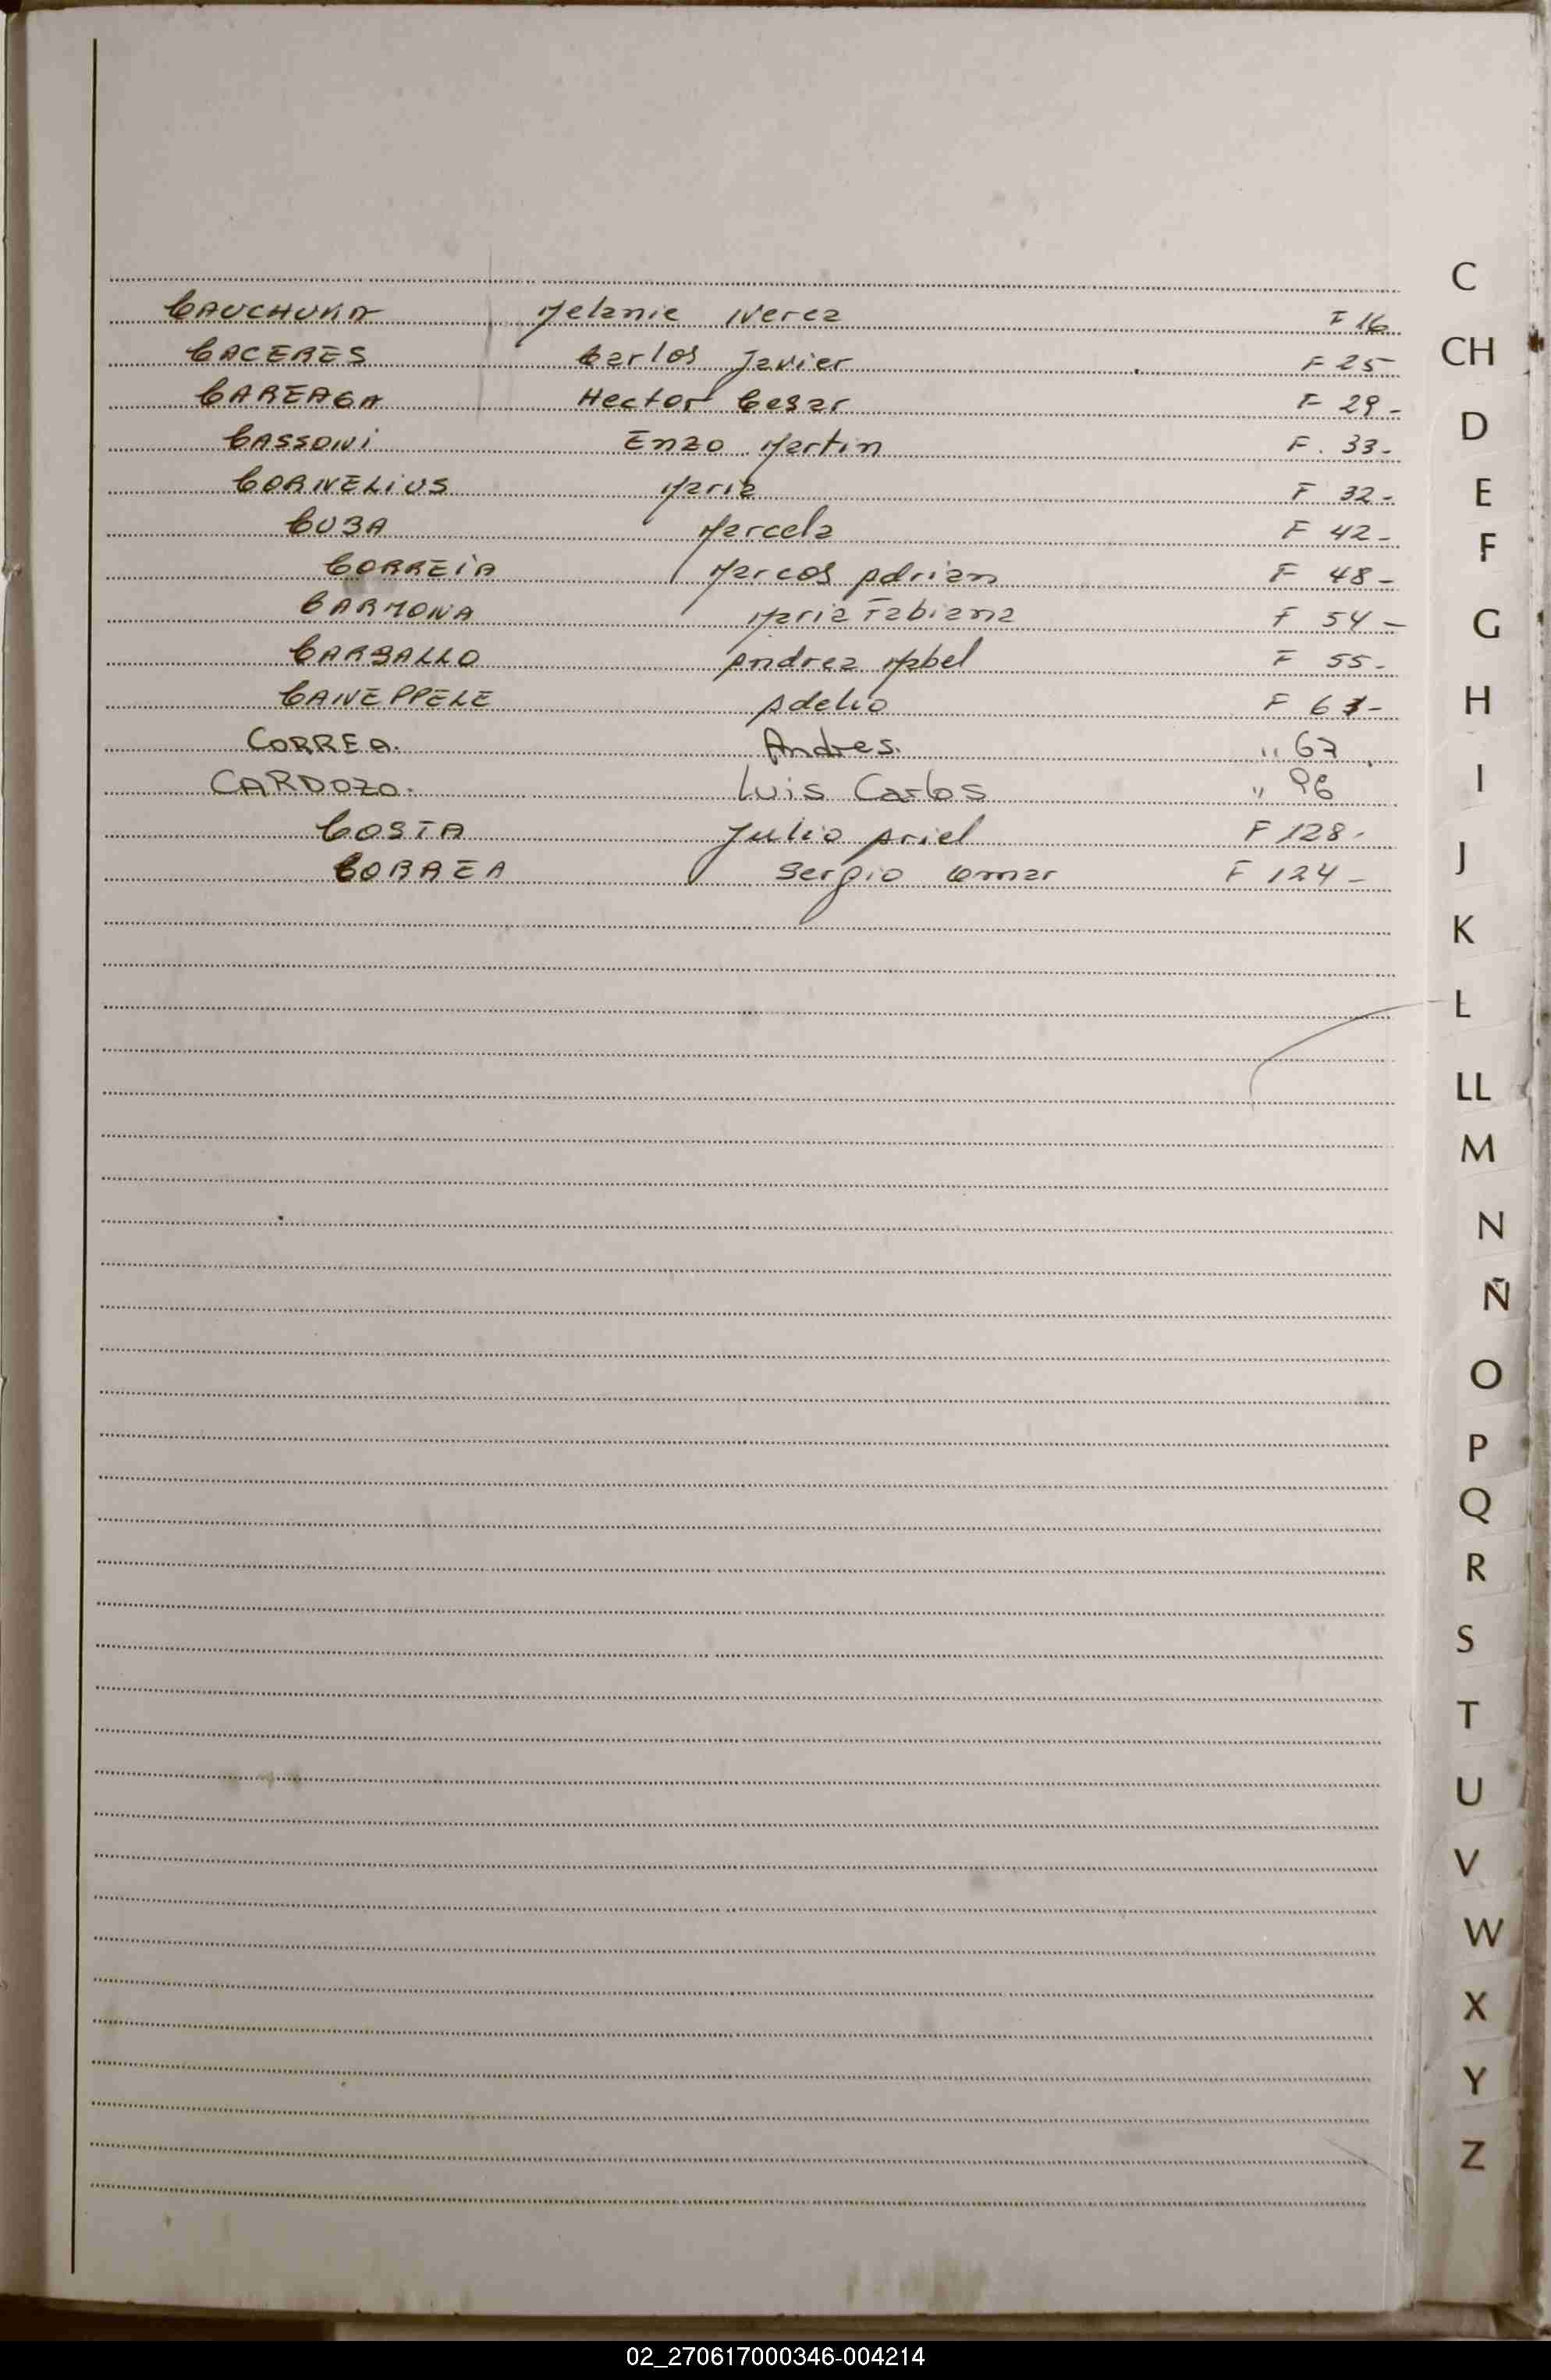 CAUCHUKA Melanie Nerea F 16
CACERES Carlos Javier F 25
CAREAGA Hector Cesar F 29-
CASSONI Enzo Martin F. 33-
CORNELIUS Maria F 32-
CUBA Marcela F 42-
CORREIA Marcos Adrian F 48-
CARMONA Maria Fabiana F 54-
CARBALLO Andrea Mabel F 55-
CANEPPELE Adelio F 61-
CORREA. Andres. " 67
CARDOZO. Luis Carlos " 96
COSTA Julio Ariel F 128-
CORREA Sergio Omar F 124-
C
CH
D
E
F
G
H
I
J
K
L
LL
M
N
Ñ
O
P
Q
R
S
T
U
V
W
X
Y
Z
02_270617000346-004214